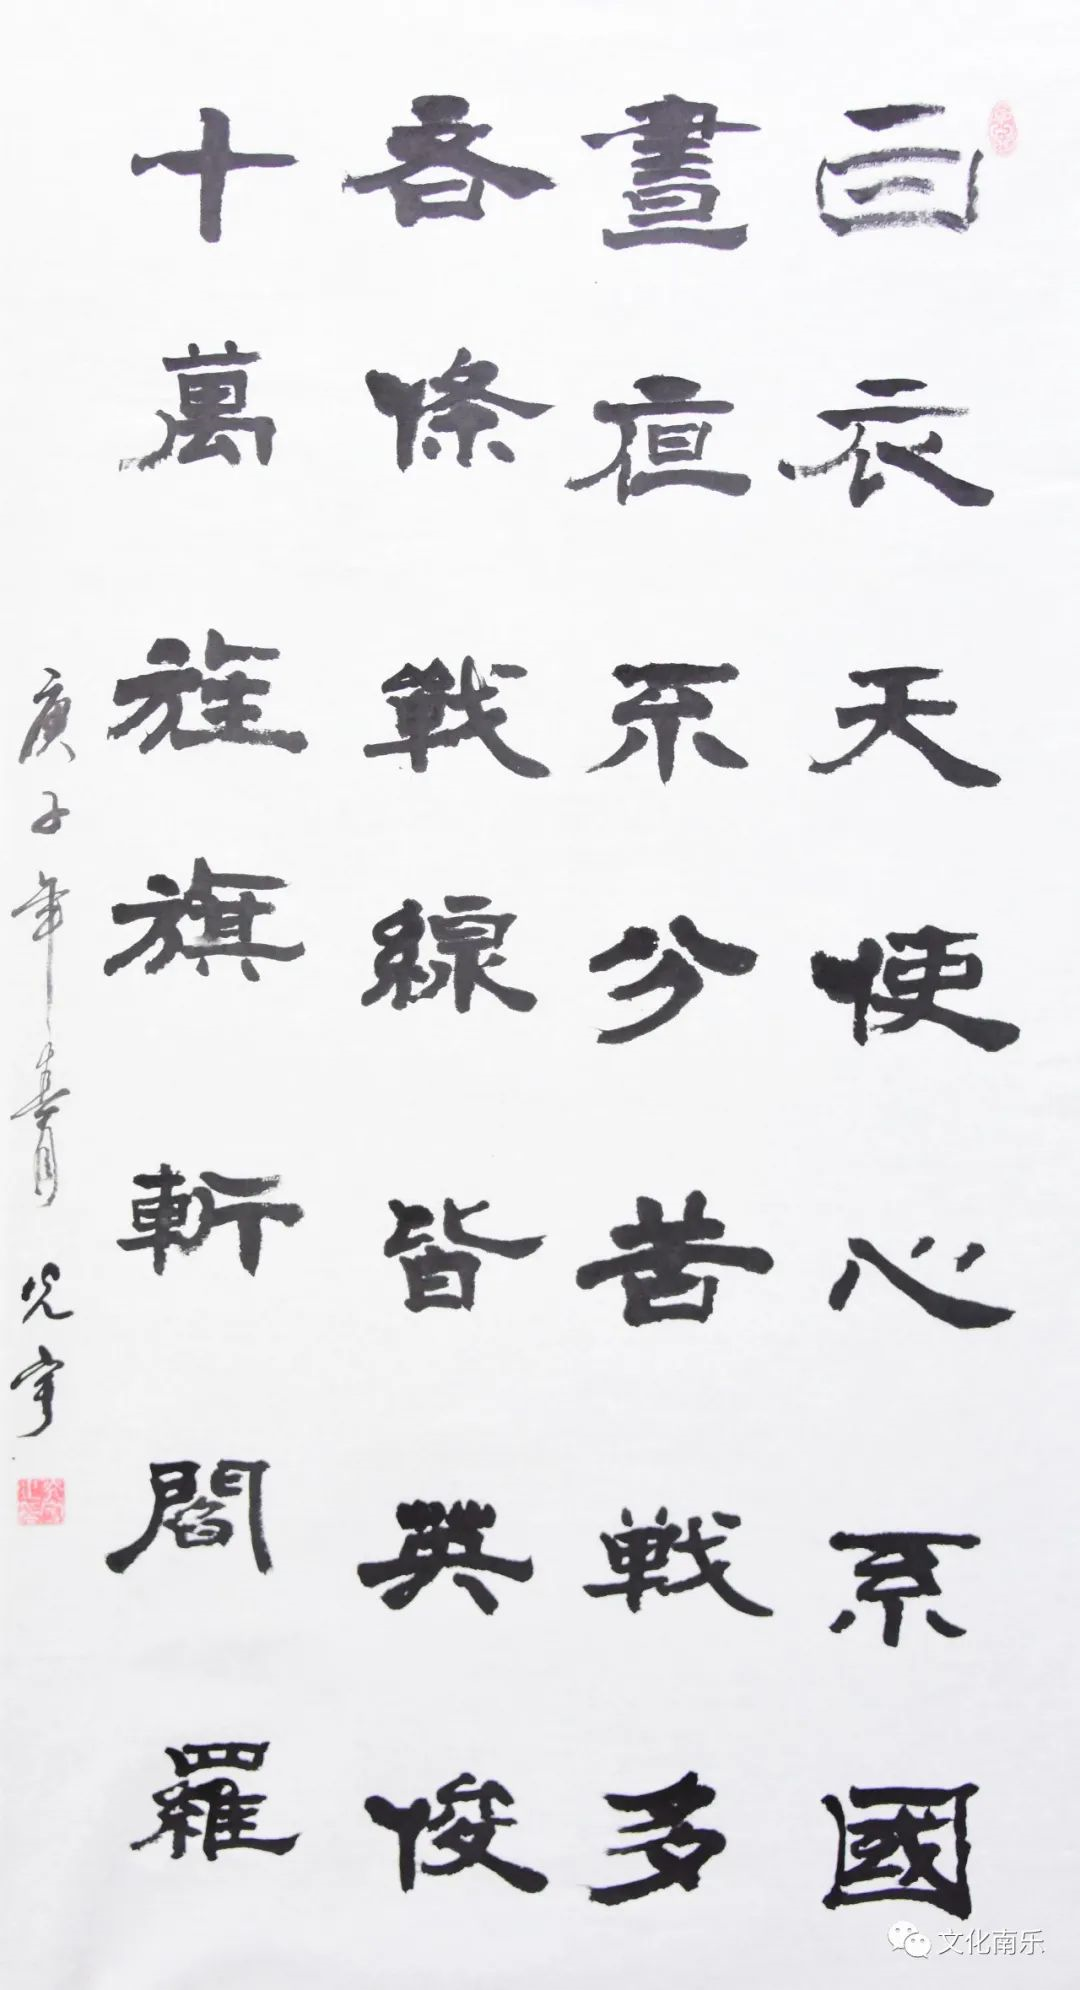 白衣天使心系國
晝亱不分苦戰多
各條戰線皆英俊
十萬旌旗斬閻羅
庚子年春月 光宇
文化南乐